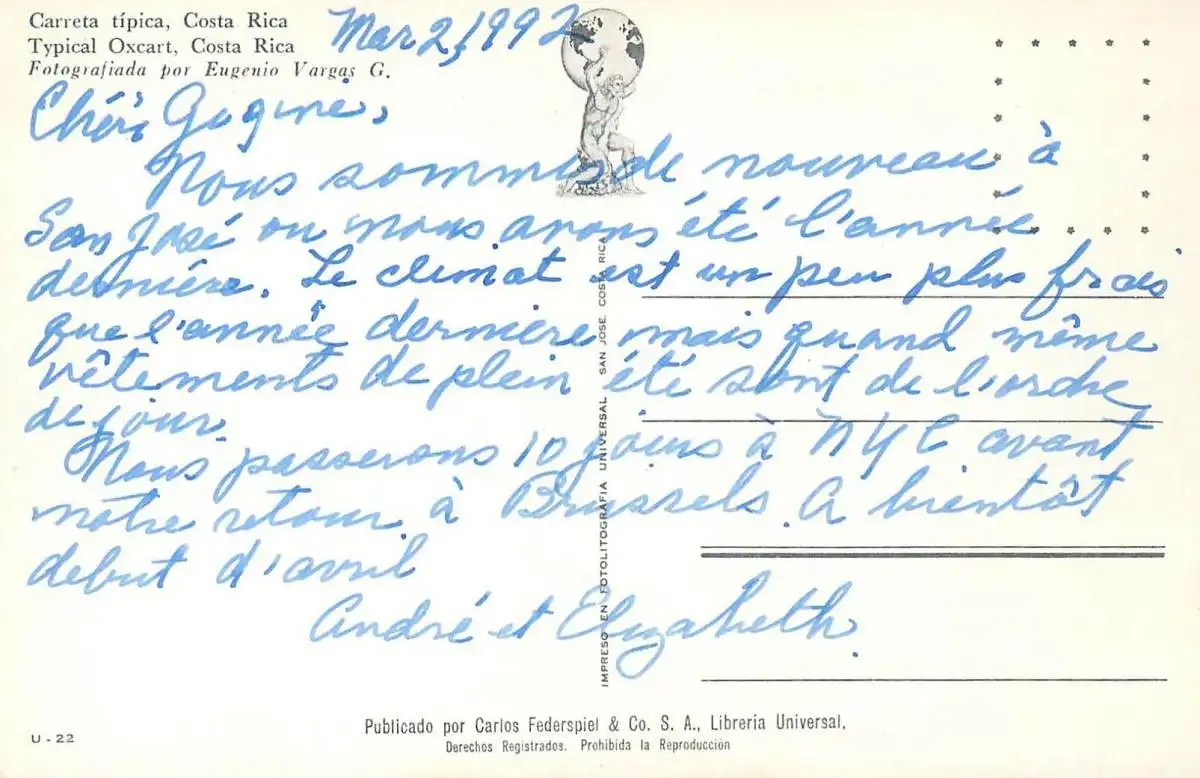 Carreta típica, Costa Rica
Typical Oxcart, Costa Rica
Fotografiada por Eugenio Vargas G.
Mar 2, 1992
Chéri Gogine,
Nous sommes de nouveau à
San José ou nous avons été l'année
dernière. Le climat est un peu plus frais
que l'année dernière mais quand même
vêtements de plein été sont de l'ordre
de jour.
Nous passerons 10 jours à NYC avant
notre retour à Brussels. A bientôt
debut d'avril
André et Elizabeth.
IMPRESO EN FOTOLITOGRAFIA UNIVERSAL SAN JOSE, COSTA RICA
Publicado por Carlos Federspiel & Co. S. A., Librería Universal.
Derechos Registrados. Prohibida la Reproducción
U - 22